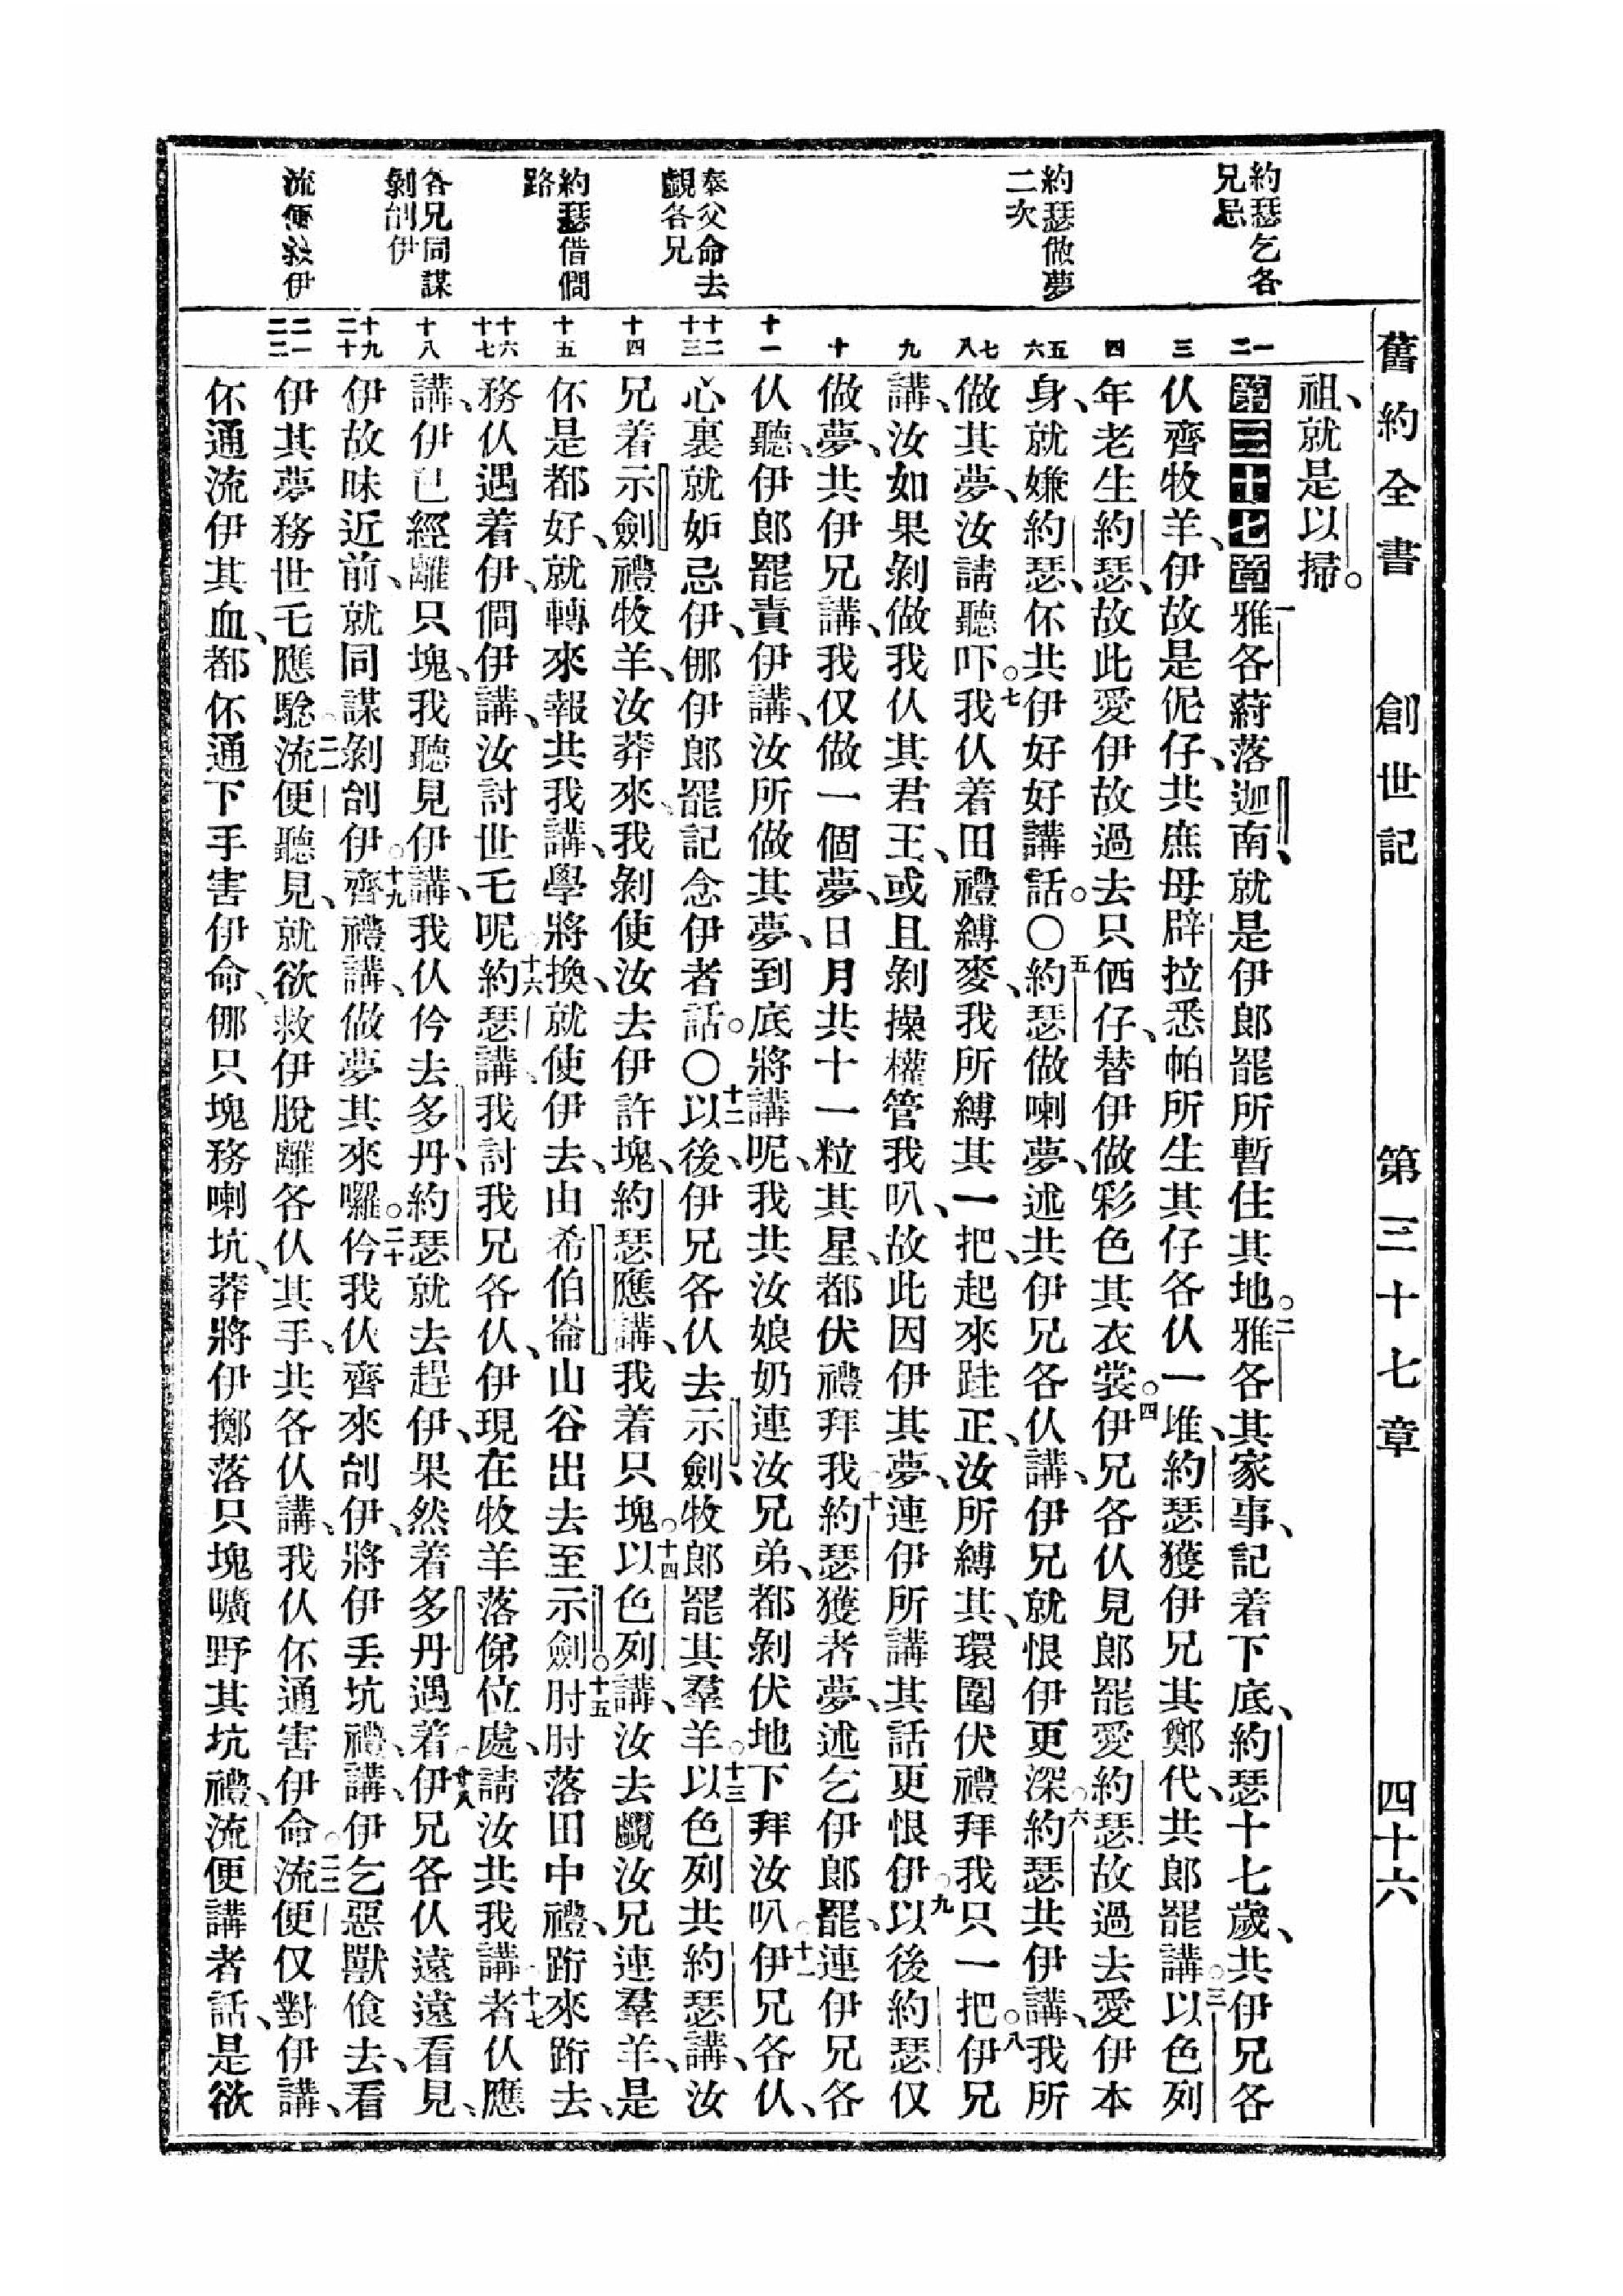 舊約全書 創世記 第三十七章 四十六
約瑟乞各
兄忌
約瑟做夢
二次
奉父命去
覷各兄
約瑟借問
路
各兄同謀
剝刣伊
流便救伊
一 二
三
四
五 六
七 八
九
十
十一
十二 十三
十四
十五
十六 十七
十八
十九 二十
二一 二二
祖、就是以掃。
第三十七章 一雅各蒔落迦南、就是伊郎罷所暫住其地。二雅各其家事、記着下底、約瑟十七歲、共伊兄各
仈齊牧羊、伊故是伲仔、共庶母辟拉悉帕所生其仔各仈一堆、約瑟獲伊兄其鄭代、共郎罷講。三以色列
年老生約瑟、故此愛伊故過去只価仔、替伊做彩色其衣裳。四伊兄各仈見郎罷愛約瑟故過去愛伊本
身、就嫌約瑟、伓共伊好好講話。〇五約瑟做喇夢、述共伊兄各仈講、伊兄就恨伊更深。六約瑟共伊講、我所
做其夢、汝請聽吓。七我仈着田禮縛麥、我所縛其一把、起來跬正、汝所縛其、環圍伏禮拜我只一把。八伊兄
講、汝如果剝做我仈其君王、或且剝操權管我叭、故此因伊其夢、連伊所講其話更恨伊。九以後約瑟仅
做夢、共伊兄講、我仅做一個夢、日月共十一粒其星、都伏禮拜我。十約瑟獲者夢、述乞伊郎罷、連伊兄各
仈聽、伊郎罷責伊講、汝所做其夢、到底將講呢、我共汝娘奶連汝兄弟、都剝伏地下拜汝叭。十一伊兄各仈、
心裏就妒忌伊、㑚伊郎罷記念伊者話。〇十二以後、伊兄各仈去示劍、牧郎罷其羣羊。十三以色列共約瑟講、汝
兄着示劍禮牧羊、汝莽來、我剝使汝去伊許塊、約瑟應講、我着只塊。十四以色列講、汝去覷汝兄連羣羊、是
伓是都好、就轉來報共我講、學將換、就使伊去、由希伯崙山谷出去至示劍。十五肘肘落田中禮、跻來跻去、
務仈遇着伊、問伊講、汝討世乇呢。十六約瑟講、我討我兄各仈、伊現在牧羊落俤位處、請汝共我講。十七者仈應
講、伊已經離只塊、我聽見伊講、我仈仱去多丹、約瑟就去趕伊、果然着多丹遇着。十八伊兄各仈遠遠看見、
伊故昧近前、就同謀剝刣伊。十九齊禮講、做夢其來囉。二十仱我仈齊來刣伊、將伊丢坑禮、講、伊乞惡獸飡去、看
伊其夢務世乇應驗。二一流便聽見、就欲救伊脫離各仈其手、共各仈講、我仈伓通害伊命。二二流便仅對伊講、
伓通流伊其血、都伓通下手害伊命、㑚只塊務喇坑、莽將伊擲落只塊曠野其坑禮、流便講者話、是欲